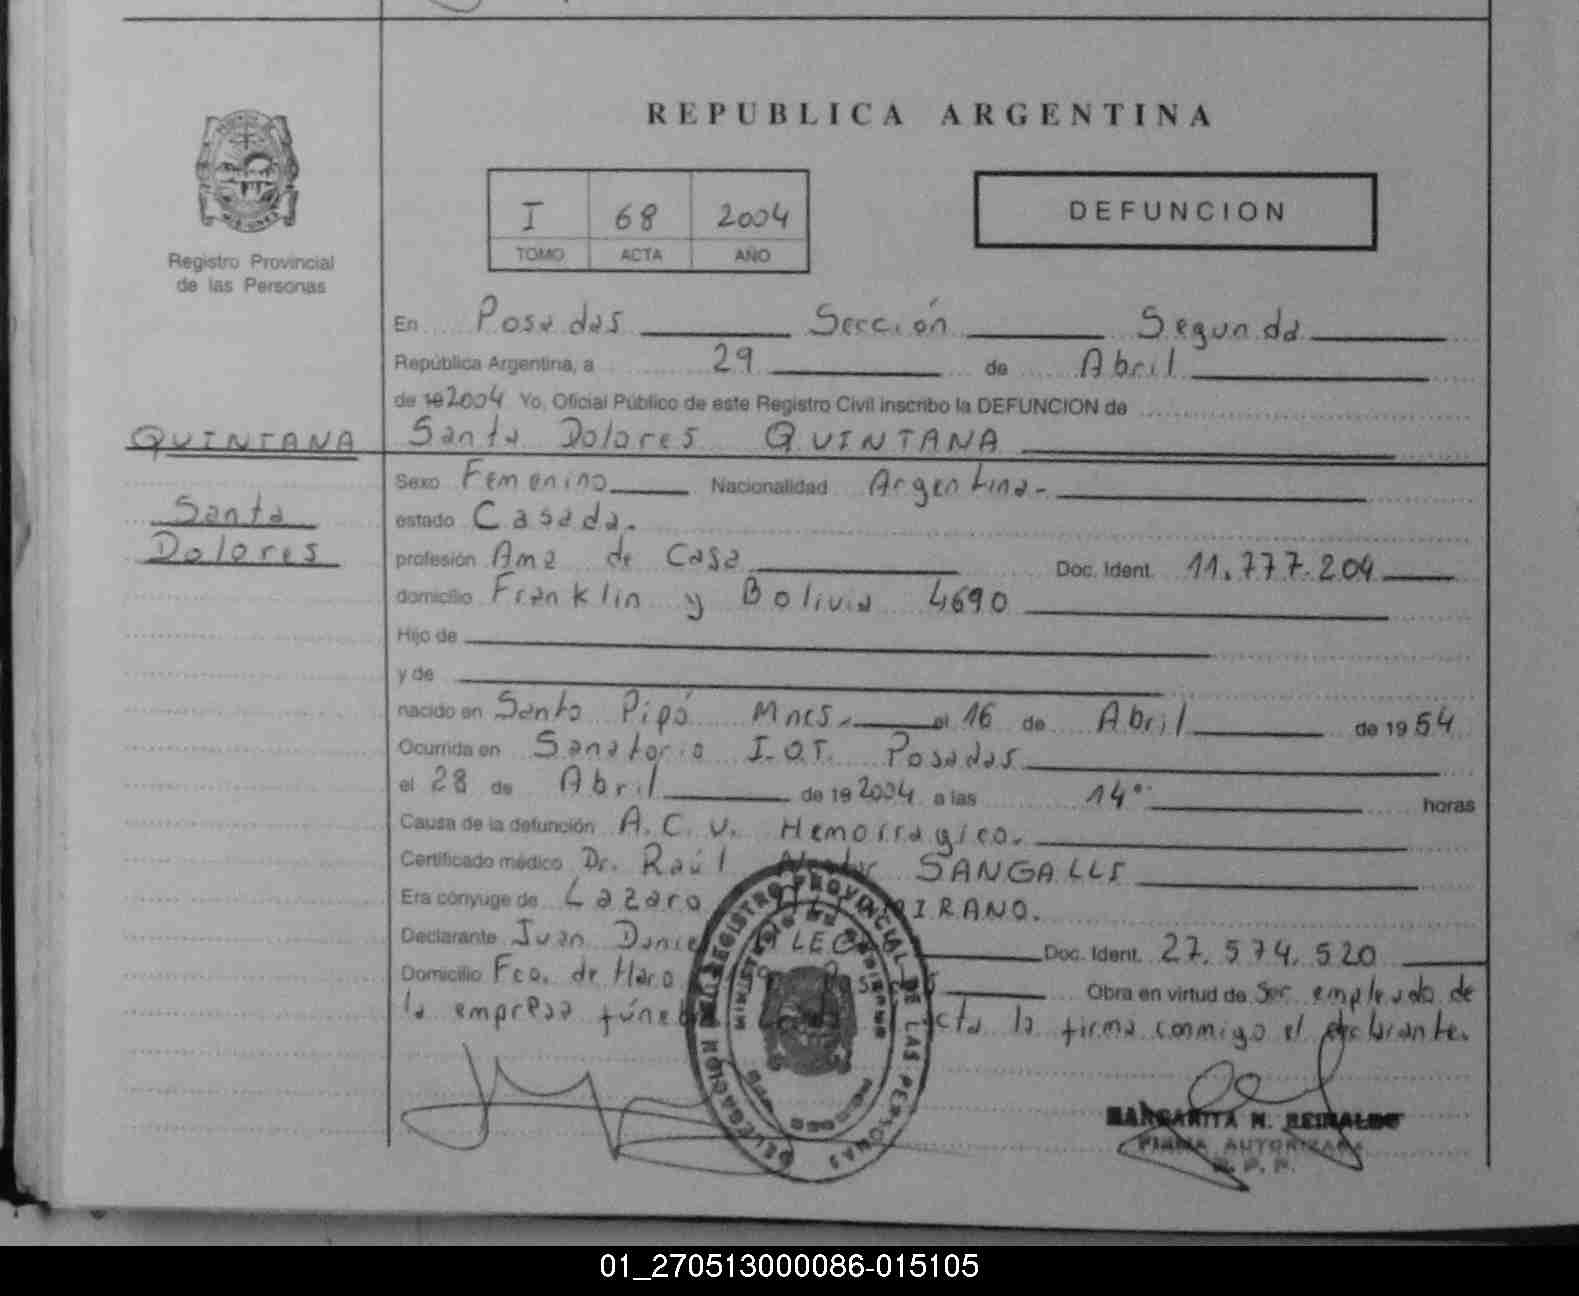 REPUBLICA ARGENTINA
I 68 2004
TOMO ACTA AÑO
DEFUNCION
Registro Provincial
de las Personas
En Posadas Sección Segunda
República Argentina, a 29 de Abril
de 19 2004 Yo, Oficial Público de este Registro Civil inscribo la DEFUNCION de
QUINTANA Santa Dolores QUINTANA
Sexo Femenino Nacionalidad Argentina.-
Santa
estado Casada.
Dolores
profesión Ama de Casa Doc. Ident. 11.777.204
domicilio Franklin y Bolivia 4690
Hijo de
y de
nacido en Santo Pipó Mnes. el 16 de Abril de 19 54
Ocurrida en Sanatorio I.O.T. Posadas
el 28 de Abril de 19 2004 a las 14 horas
Causa de la defunción A.C.V. Hemorragico.
Certificado médico Dr. Raúl SANGALLI
Era cónyuge de Lazaro
Declarante Juan Doc. Ident. 27.574.520
Domicilio Fco. de Haro Obra en virtud de Ser empleado de
la empresa la firma conmigo el declarante.
DELEGACION REGISTRO PROVINCIAL DE LAS PERSONAS
MINISTERIO DE GOBIERNO
MARGARITA N. REINALDO
FIRMA AUTORIZADA
R. P. P.
01_270513000086-015105